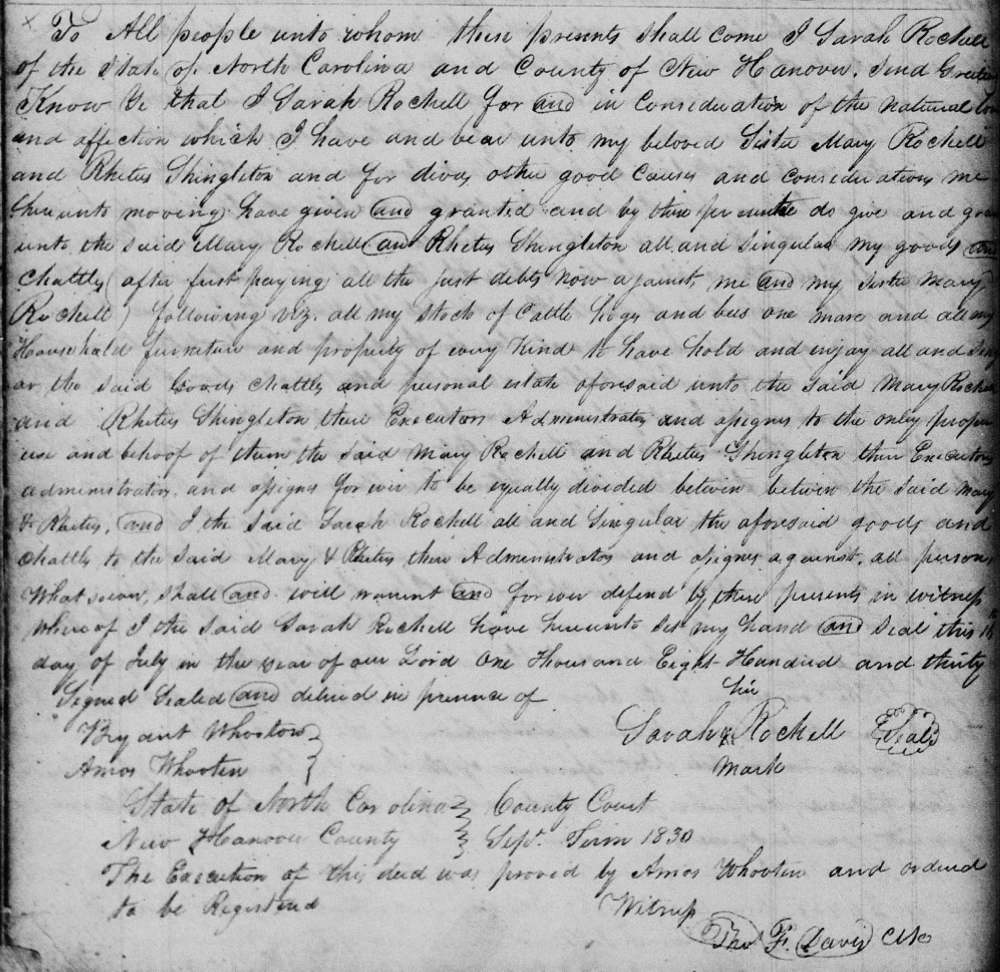 To All people unto whom these presents shall come I Sarah Rochell
of the State of North Carolina and County of New Hanover, Send Greeting
Know Ye that I Sarah Rochell for and in Consideration of the natural love
and affection which I have and bear unto my beloved Sister Mary Rochell
and Rhetus Shingleton and for divers other good Causes and considerations me
thereunto moving have given and granted and by these presents do give and grant
unto the said Mary Rochell and Rhetus Shingleton all and Singular my goods and
Chattles (after first paying all the just debts now against me and my Sister Mary
Rochell) following viz. all my stock of Cattle hogs and bees one mare and all my
Household furniture and property of every kind to have hold and enjoy all and Sing
ar the said Goods chattles and personal estate aforesaid unto the said Mary Rochell
and Rhetus Shingleton their Executors Administrators and assigns to the only proper
use and behoof of them the said Mary Rochell and Rhetus Shingleton their Executors
administrators and assigns forever to be equally divided betwen betwen the said Mary
& Rhetus, and I the Said Sarah Rochell all and Singular the aforesaid goods and
chattles to the said Mary & Rhetus their Administrators and assigns against all persons
Whatsoever, shall and will warrent and forever defend by these presents in witness
whereof I the said Sarah Rochell have hereunto Set my hand and Seal this
day of July in the year of our Lord One thousand Eight Hundred and thirty
Signed Sealed and delived in presence of
her
Bryant Whooten
Sarah X Rochell Seal
Amos Whooten
mark
State of North Carolina County Court
New Hanover County Sept. Term 1830
The Execution of this deed was proved by Amos Whooten and ordered
to be Registered
Witness
Tho F. Davis Clk